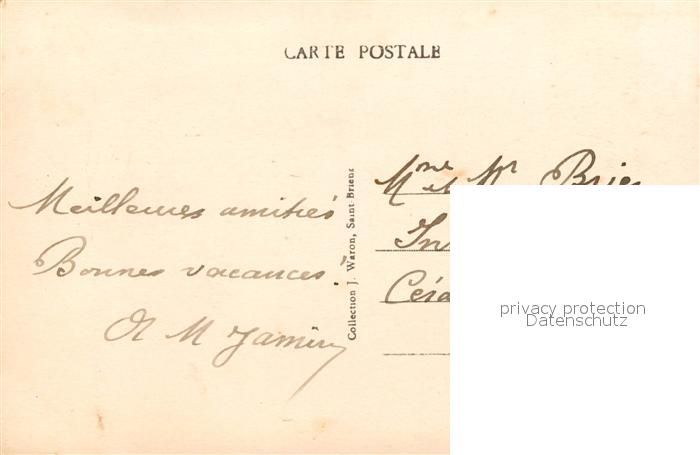 CARTE POSTALE
Meilleures amitiés
Bonnes vacances
M Jamin
Collection J. Waron, Saint Brieuc
Mme et Mr
privacy protection
Datenschutz